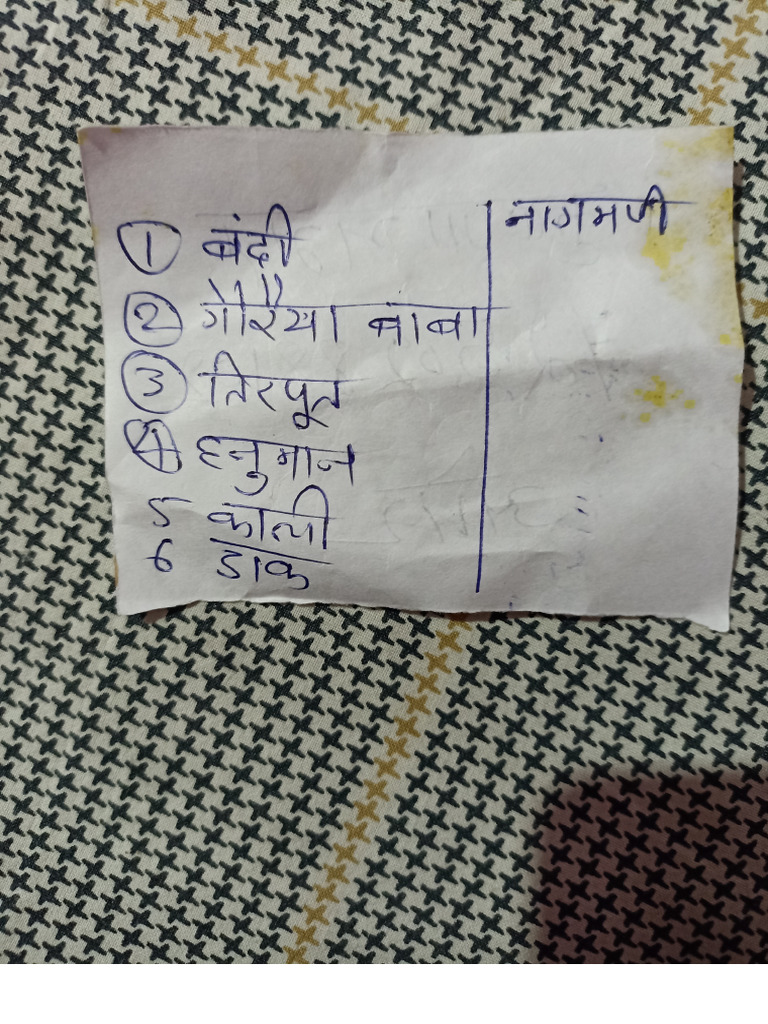 ① बंदी
② गौरैया बाबा
③ तिरपूत
④ हनुमान
5 काली
6 डाक
नागमणी